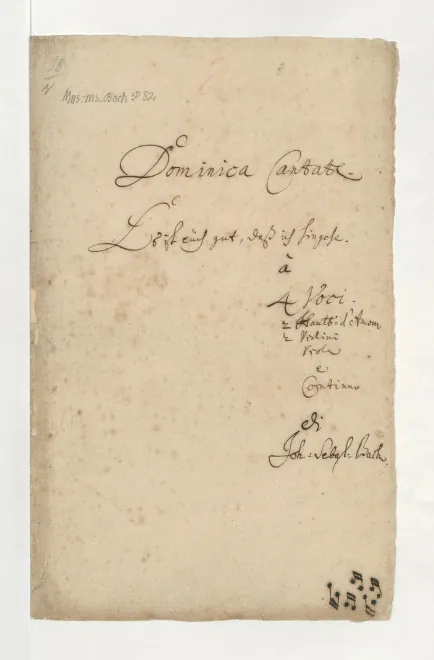 28
N
Mus. ms. Bach P 82
Dominica Cantate.
Es ist euch gut, daß ich hingehe.
à
4 Voci.
2 Hautb: d'Amour
2 Violini
Viola
e
Continuo
di
Joh: Sebast: Bach.